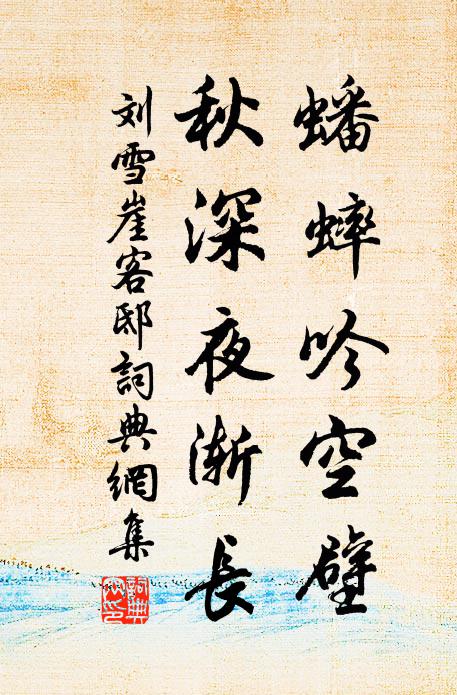 蟠蟀吟空壁
秋深夜渐長
刘雪崖客邸詞典網集